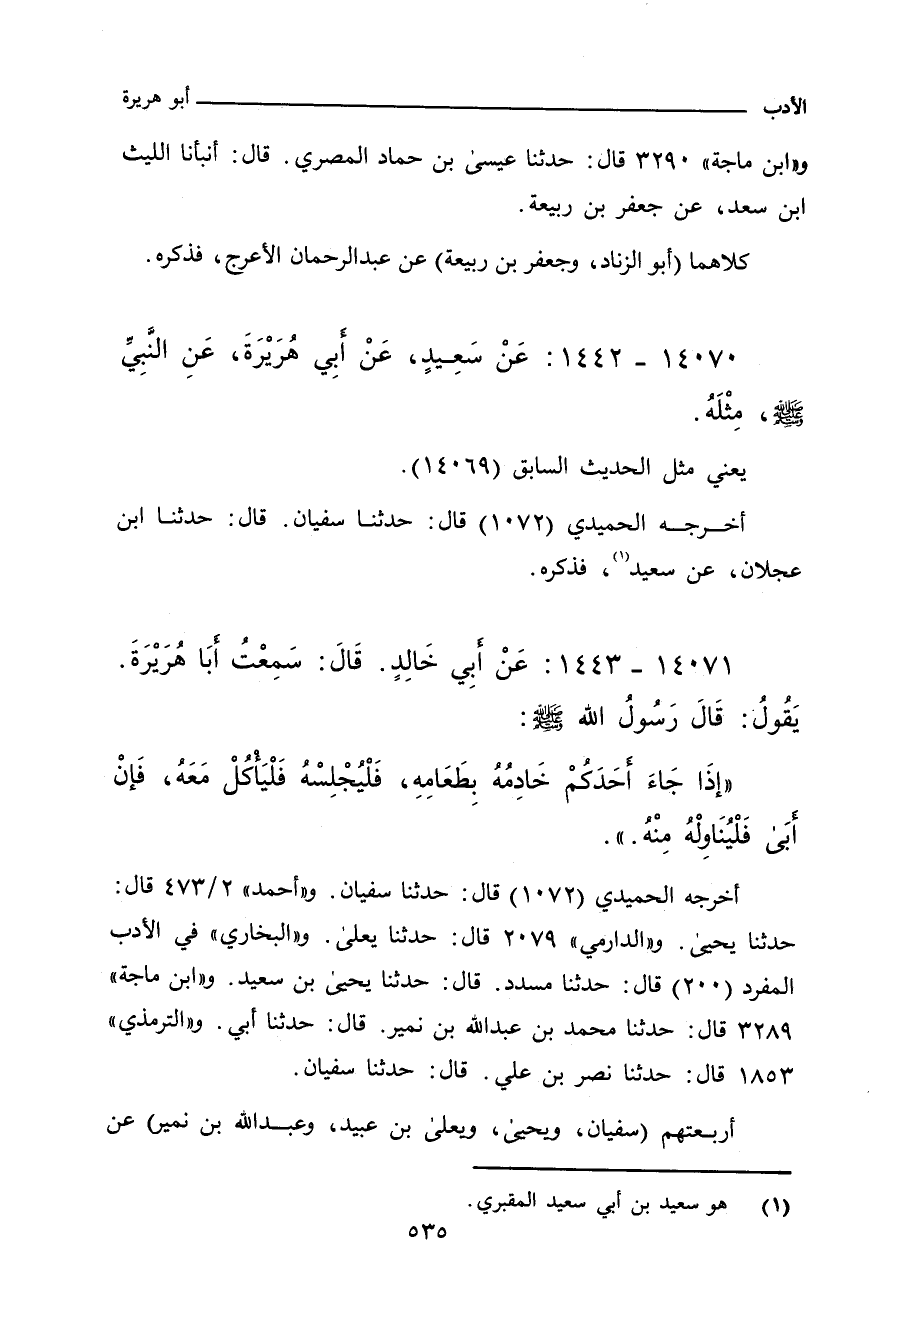 الأدب ــــــــــ أبو هريرة
و«ابن ماجة» ٣٢٩٠ قال: حدثنا عيسىٰ بن حماد المصري. قال: أنبأنا الليث
ابن سعد، عن جعفر بن ربيعة.
كلاهما (أبو الزناد، وجعفر بن ربيعة) عن عبدالرحمان الأعرج، فذكره.
١٤٠٧٠ - ١٤٤٢: عَنْ سَعِيدٍ، عَنْ أَبِي هُرَيْرَةَ، عَنِ النَّبِيِّ
ﷺ، مِثْلَهُ.
يعني مثل الحديث السابق (١٤٠٦٩).
أخرجه الحميدي (١٠٧٢) قال: حدثنا سفيان. قال: حدثنا ابن
عجلان، عن سعيد(١)، فذكره.
١٤٠٧١ - ١٤٤٣: عَنْ أَبِي خَالِدٍ. قَالَ: سَمِعْتُ أَبَا هُرَيْرَةَ.
يَقُولُ: قَالَ رَسُولُ الله ﷺ:
«إِذَا جَاءَ أَحَدَكُمْ خَادِمُهُ بِطَعَامِهِ، فَلْيُجْلِسْهُ فَلْيَأْكُلْ مَعَهُ، فَإِنْ
أَبَىٰ فَلْيُنَاوِلْهُ مِنْهُ.».
أخرجه الحميدي (١٠٧٢) قال: حدثنا سفيان. و«أحمد» ٤٧٣/٢ قال:
حدثنا يحيىٰ. و«الدارمي» ٢٠٧٩ قال: حدثنا يعلىٰ. و«البخاري» في الأدب
المفرد (٢٠٠) قال: حدثنا مسدد. قال: حدثنا يحيىٰ بن سعيد. و«ابن ماجة»
٣٢٨٩ قال: حدثنا محمد بن عبدالله بن نمير. قال: حدثنا أبي. و«الترمذي»
١٨٥٣ قال: حدثنا نصر بن علي. قال: حدثنا سفيان.
أربعتهم (سفيان، ويحيىٰ، ويعلىٰ بن عبيد، وعبدالله بن نمير) عن
(١) هو سعيد بن أبي سعيد المقبري.
٥٣٥